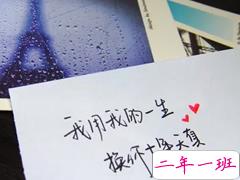 我用我的一生
换你十年天真
二年一班